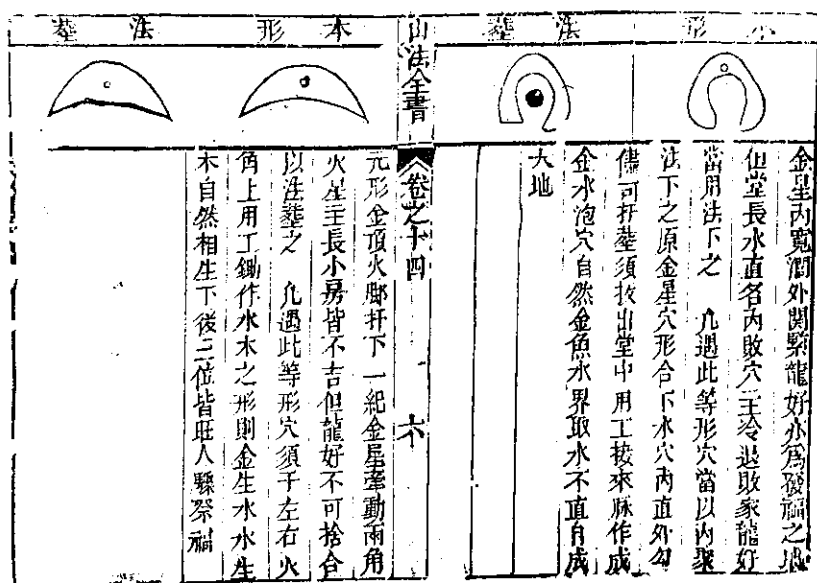 本形
葬法
金星內寬濶外関緊龍好亦為發福之地
但堂長水直名內敗穴主冷退敗家龍好
當用法下之　凡遇此等形穴當以內聚
法下之原金星穴形合下水穴內直外勾
儘可扦葬須拔出堂中用工接來脉作成
金水泡穴自然金魚水界取水不直自成
大地
山法全書
卷之十四
六
本形
葬法
元形金頂火脚扦下一紀金星牽動兩角
火星主長小房皆不吉但龍好不可捨合
以法葬之　凡遇此等形穴須于左右火
角上用工鋤作水木之形則金生水水生
木自然相生下後三位皆旺人驟發福